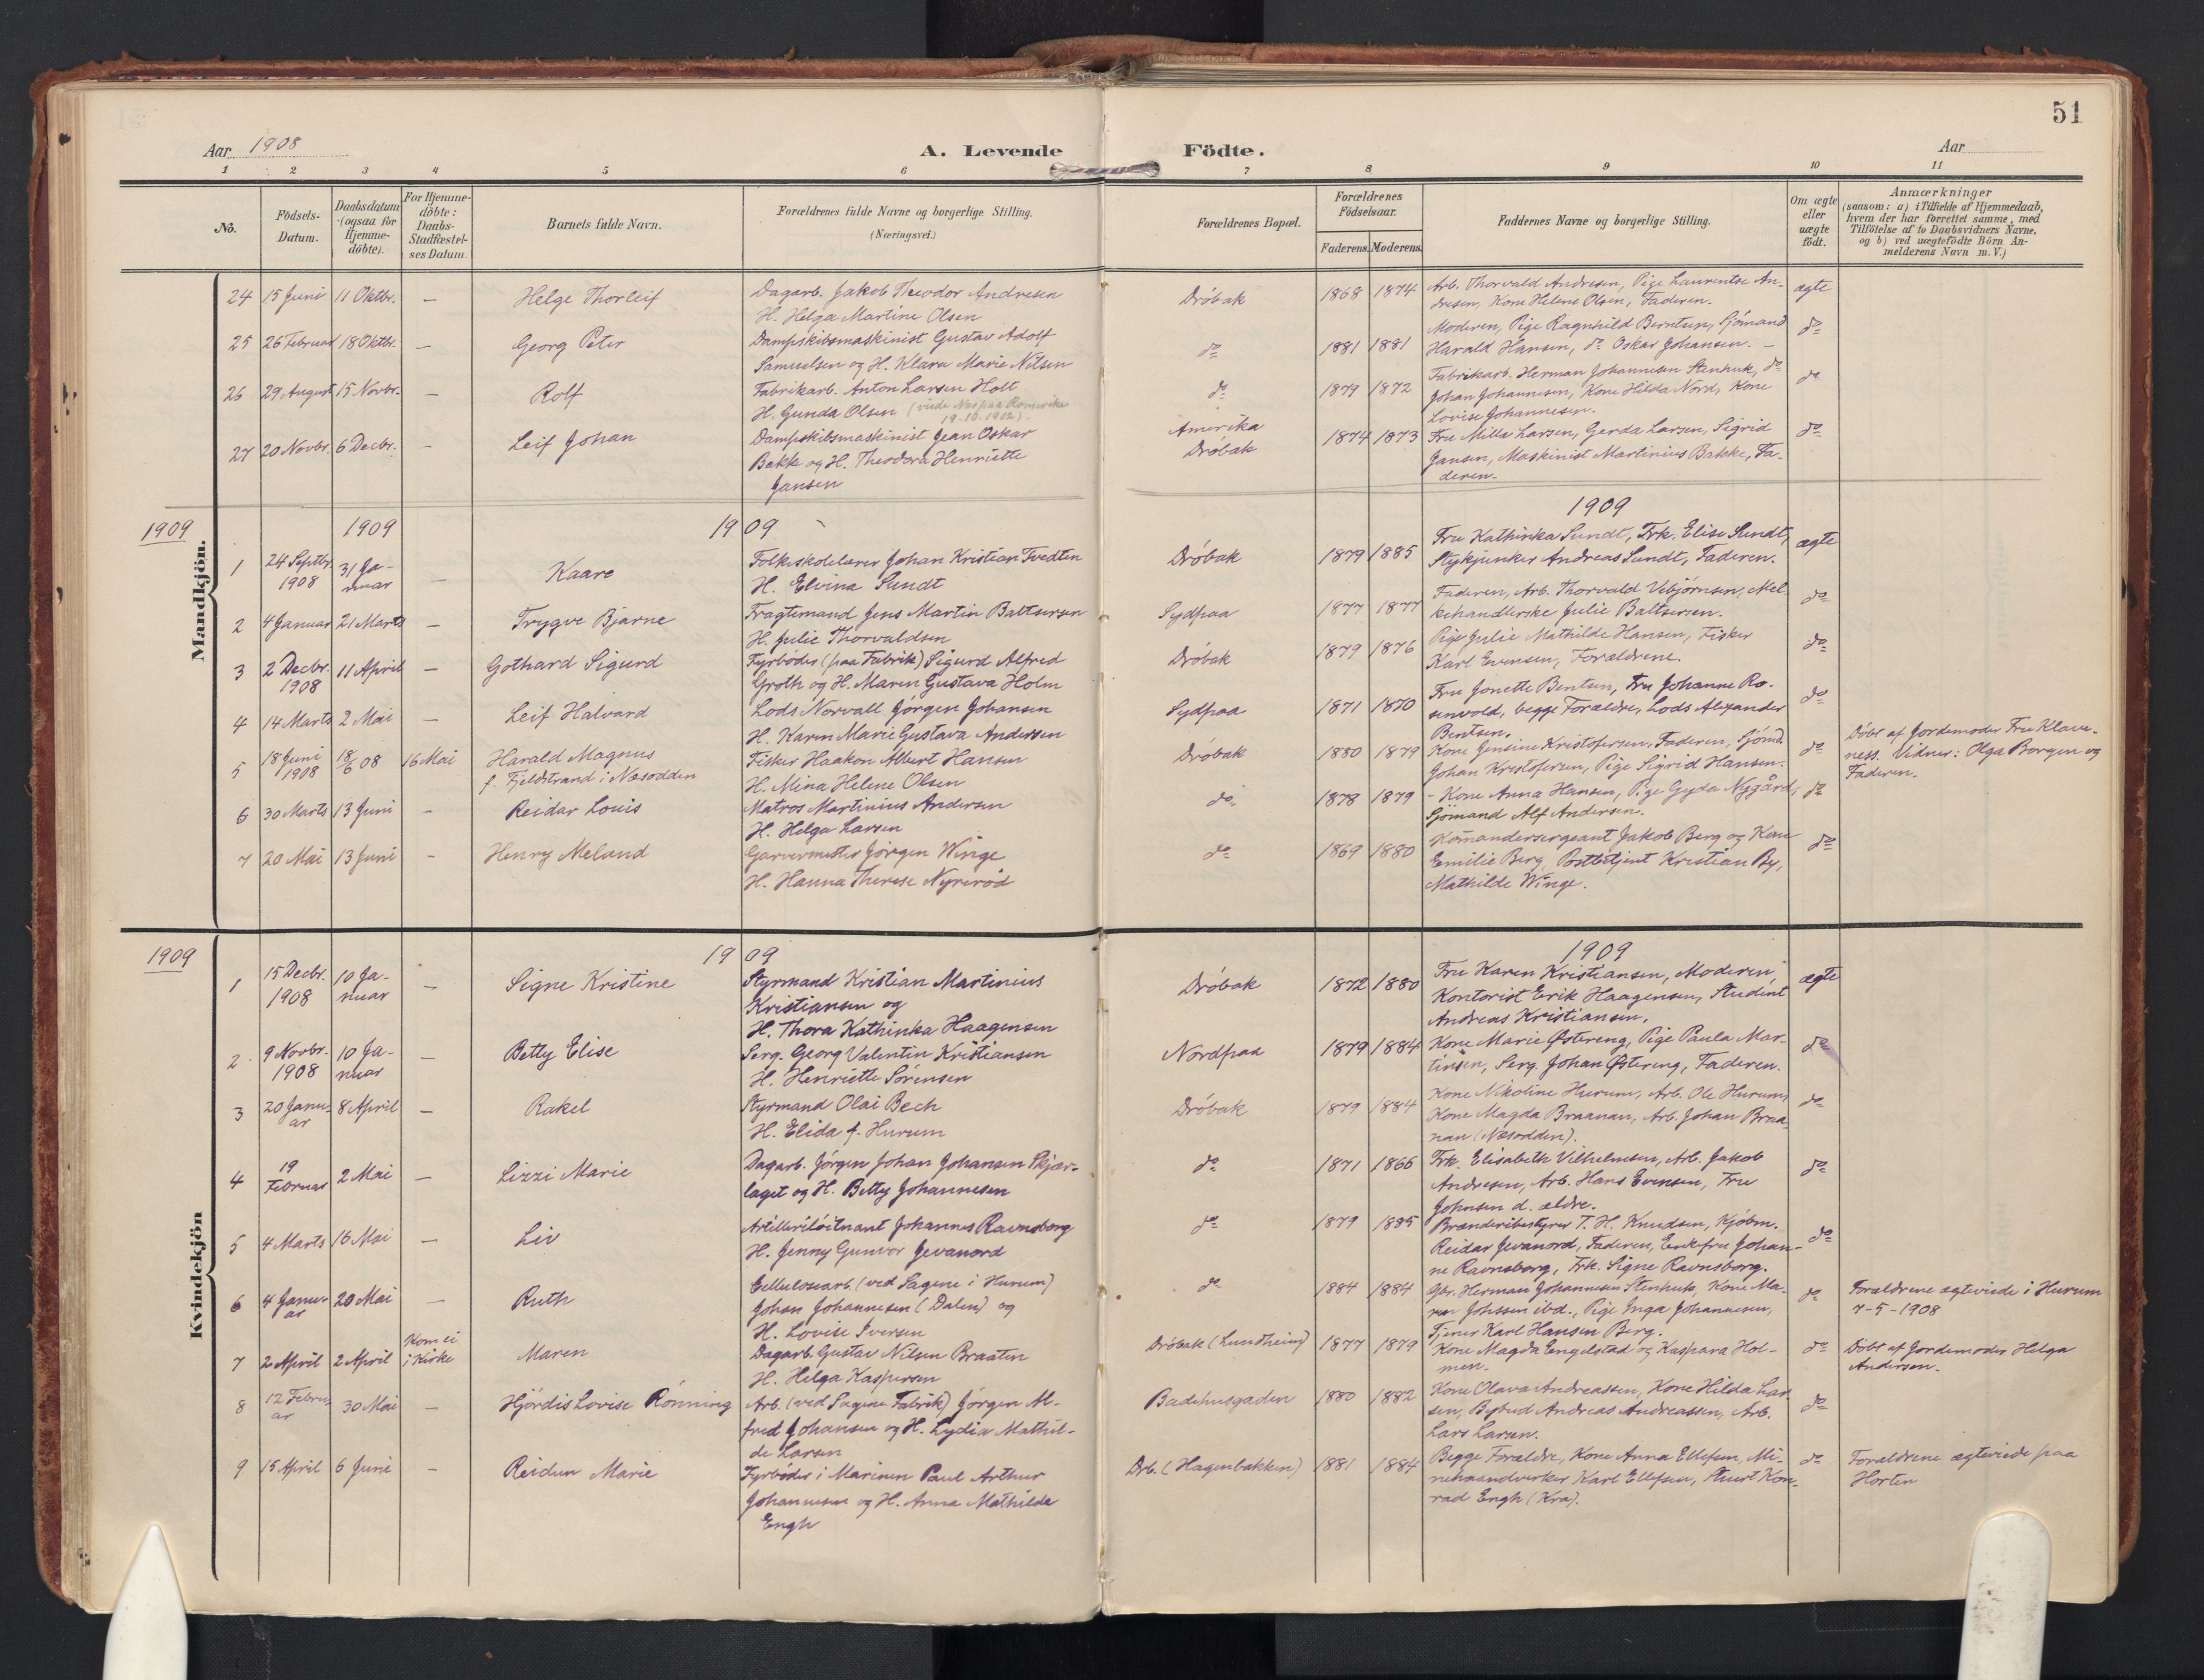 51
Aar 1908
A. Levende Födte.
Aar
1 2 3 4 5 6 7 8 9 10 11
No.
Födsels-Datum.
Daabsdatum (ogsaa for Hjemme-döbte).
For Hjemme-döbte: Daabs-Stadfæstel-ses Datum.
Barnets fulde Navn.
Forældrenes fulde Navne og borgerlige Stilling.
(Næringsvei.)
Forældrenes Bopæl.
Forældrenes Födselsaar.
Faderens. Moderens.
Faddernes Navne og borgerlige Stilling.
Om ægte eller uægte födt.
Anmærkninger
(saasom: a) i Tilfælde af Hjemmedaab,
hvem der har forrettet samme, med
Tilföielse af to Daabsvidners Navne,
og b) ved uægtefödte Börn An-
melderens Navn m. V.)
Mandkjön.
24 15 Juni 11 Oktbr. — Helge Thorleif
Dagarb. Jakob Theodor Andresen
H. Helga Martine Olsen
Dröbak 1868 1874
Arb. Thorvald Andresen, Pige Laurentse An-
dresen, Kone Helene Olsen, Faderen.
ægte
25 26 Februar 18 Oktbr. — Georg Peter
Dampskibsmaskinist Gustav Adolf
Samuelsen og H. Klara Marie Nilsen
do 1881 1881
Moderen, Pige Ragnhild Berntsen, Sjömand
Harald Hansen, do Oskar Johansen. —
do
26 29 August 15 Novbr. — Rolf
Fabrikarb. Anton Larsen Holt
H. Gunda Olsen (viede Nes paa Romerike
19.10.1902)
do 1879 1872
Fabrikarb. Herman Johannesen Stenhuk, do
Johan Johannesen, Kone Hilda Nord, Kone
Lovise Johannesen.
do
27 20 Novbr. 6 Decbr. — Leif Johan
Dampskibsmaskinist Jean Oskar
Bakk og H. Theodora Henriette
Jansen
Amerika
Dröbak
1874 1873
Fru Milla Larsen, Gerda Larsen, Sigrid
Jansen, Maskinist Martinius Bakke, Fa-
deren.
do
1909 1909 1909 1909
1 24 Septbr. 1908 31 Ja-nuar — Kaare
Folkeskolelærer Johan Kristian Tvedten
H. Elvina Sundt
Dröbak 1879 1885
Fru Kathinka Sundt, Frk. Elise Sundt,
Stykjunker Andreas Sundt, Faderen.
ægte
2 4 Januar 21 Marts — Trygve Bjarne
Fragtemand Jens Martin Baltsersen
H. Julie Thorvaldsen
Sydpaa 1877 1877
Faderen, Arb. Thorvald Vebjörnsen, Mel-
kehandlerske Julie Baltsersen.
do
3 2 Decbr. 1908 11 April — Gothard Sigurd
Fyrböder (paa Fabrik) Sigurd Alfred
Groth og H. Maren Gustava Holm
Dröbak 1879 1876
Pige Julie Mathilde Hansen, Fisker
Karl Evensen, Forældrene.
do
4 14 Marts 2 Mai — Leif Halvard
Lods Norvall Jörgen Johansen
H. Karen Marie Gustava Andersen
Sydpaa 1871 1870
Fru Jonette Bentsen, Fru Johanne Ro-
senvold, begge Forældre, Lods Alexander
Bentsen.
do
5 18 Juni 1908 18/6 08 16 Mai Harald Magnus
f. Fjeldstrand i Næsodden
Fisker Haakon Albert Hansen
H. Mina Helene Olsen
Dröbak 1880 1879
Kone Jensine Kristofersen, Faderen, Sjömd.
Johan Kristofersen, Pige Sigrid Hansen.
do
Döbt af Jordemoder Fru Klave-
ness. Vidner: Olga Borgen og
Faderen.
6 30 Marts 13 Juni — Reidar Louis
Matros Martinius Andersen
H. Helga Larsen
do 1878 1879
- Kone Anna Hansen, Pige Gyda Nygård,
Sjömand Alf Andersen.
do
7 20 Mai 13 Juni - Henry Meland
Garvermester Jörgen Winge
H. Hanna Therese Nyreröd
do 1869 1880
Komandersergeant Jakob Berg og Kone
Emilie Berg, Postbetjent Kristian By,
Mathilde Winge.
do
Kvindekjön
1909 1909 1909
1 15 Decbr. 1908 10 Ja-nuar — Signe Kristine
Styrmand Kristian Martinius
Kristiansen og
H. Thora Kathinka Haagensen
Dröbak 1872 1880
Fru Karen Kristiansen, Moderen,
Kontorist Erik Haagensen, Student
Andreas Kristiansen.
ægte
2 9 Novbr. 1908 10 Ja-nuar — Betty Elise
Serg. Georg Valentin Kristiansen
H. Henriette Sörensen
Nordpaa 1879 1884
Kone Marie Østereng, Pige Paula Mar-
tinsen, Serg. Johan Østereng, Faderen.
do
3 20 Janu-ar 8 April — Rakel
Styrmand Olai Bech
H. Elida f. Hurum
Dröbak 1879 1884
Kone Nikoline Hurum, Arb. Ole Hurum,
Kone Magda Braanan, Arb. Johan Braa-
nan (Næsodden).
do
4 19 Februar 2 Mai — Lizzi Marie
Dagarb. Jörgen Johan Johansen Skjær-
laget og H. Betty Johannesen
do 1871 1866
Frk. Elisabeth Vilhelmsen, Arb. Jakob
Andresen, Arb. Hans Evensen, Fru
Johnsen d. ældre.
do
5 4 Marts 16 Mai — Liv
Artilleriløitnant Johannes Ravnsborg
H. Jenny Gunvor Jevanord
do 1879 1885
Brænderibestyrer T. H. Knudsen, Kjöbm.
Reidar Jevanord, Faderen, Enkefru Johan-
ne Ravnsborg, Frk. Signe Ravnsborg.
do
6 4 Janu-ar 20 Mai — Ruth
Cellulosearb. (ved Sagene i Hurum)
Johan Johannesen (Dalen) og
H. Lovise Iversen
do 1884 1884
Gbr. Herman Johannesen Stenhuk, Kone Ma-
ren Johssen ibd., Pige Inga Johannesen,
Tjener Karl Hansen Berg.
do
Forældrene ægteviede i Hurum
7-5-1908
7 2 April 2 April Kom ei i Kirke Maren
Dagarb. Gustav Nilsen Braaten
H. Helga Kaspersen
Dröbak (Lundheim) 1877 1879
Kone Magda Engelstad og Kaspara Hol-
men.
do
Döbt af Jordemoder Helga
Andersen.
8 12 Febru-ar 30 Mai — Hjördis Lovise Rönning
Arb. (ved Sagene Fabrik) Jörgen Al-
fred Johansen og H. Lydia Mathil-
de Larsen
Badehusgaden 1880 1882
Kone Olava Andreassen, Kone Hilda Lar-
sen, Bybud Andreas Andreassen, Arb.
Lars Larsen.
do
9 15 April 6 Juni — Reidun Marie
Fyrböder i Marinen Paul Arthur
Johannesen og H. Anna Mathilde
Engh
Drb. (Hagenbakken) 1881 1884
Begge Forældre, Kone Anna Ellefsen, Mi-
nehaandverker Karl Ellefsen, Stuert Kon-
rad Engh (Kra).
do
Forældrene ægteviede paa
Horten